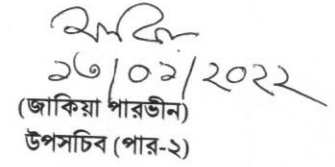 ১৩/০২/২০২২
(জাকিয়া পারভীন)
উপসচিব (পার-২)